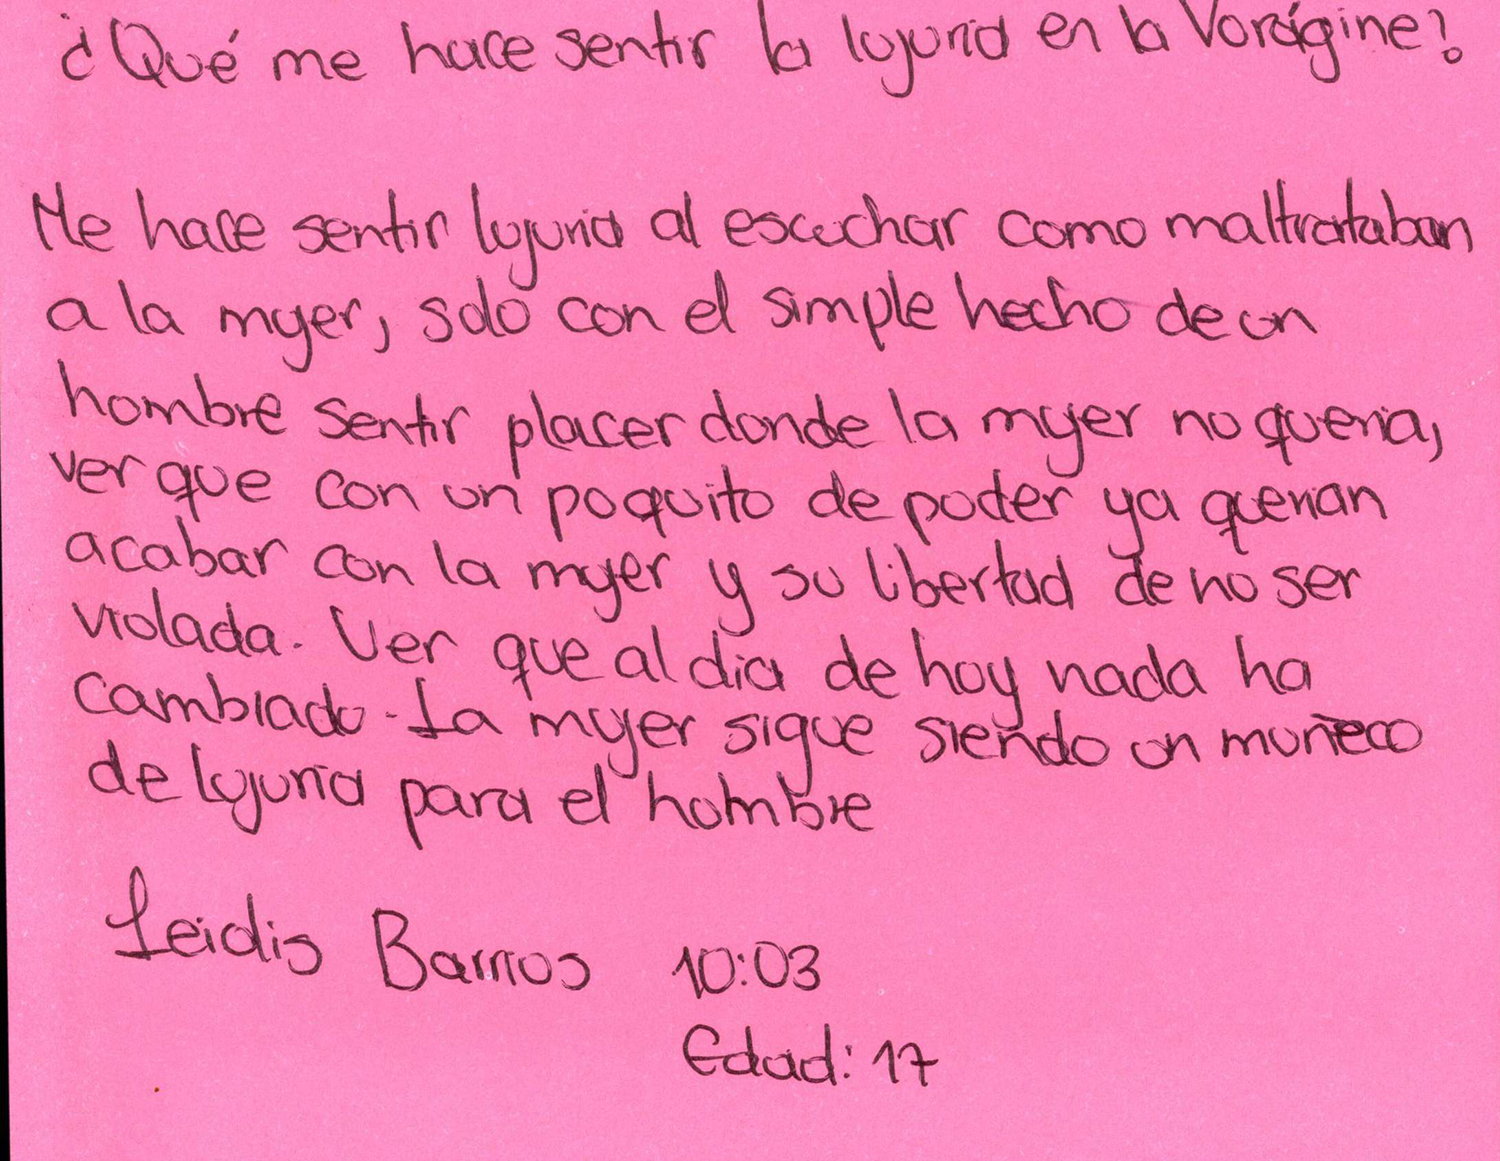 ¿Qué me hace sentir la lujuria en la Vorágine?
Me hace sentir lujuria al escuchar como maltrataban
a la mujer, solo con el simple hecho de un
hombre sentir placer donde la mujer no queria,
ver que con un poquito de poder ya querian
acabar con la mujer y su libertad de no ser
violada. Ver que al dia de hoy nada ha
cambiado. La mujer sigue siendo un muñeco
de lujuria para el hombre
Leidis Barrios 10:03
Edad: 17